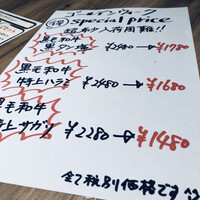 ゴールデンウィーク
得 special price
超絶入荷困難!!
黒毛和牛
黒タン塩 ¥2480→¥1780
黒毛和牛
特上ハラミ ¥2480→¥1680
黒毛和牛
特上サガリ ¥2280→¥1480
全て税別価格です